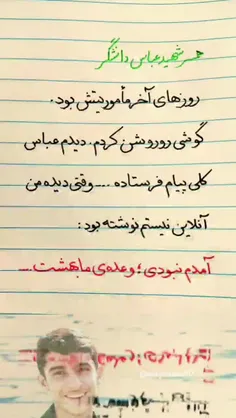 همسر شهید عباس دانشگر
روزهای آخر مأموریتش بود.
گوشی رو روشن کردم. دیدم عباس
کلی پیام فرستاده .... وقتی دیده من
آنلاین نیستم نوشته بود:
آمدم نبودی؛ وعده‌ی ما بهشت....